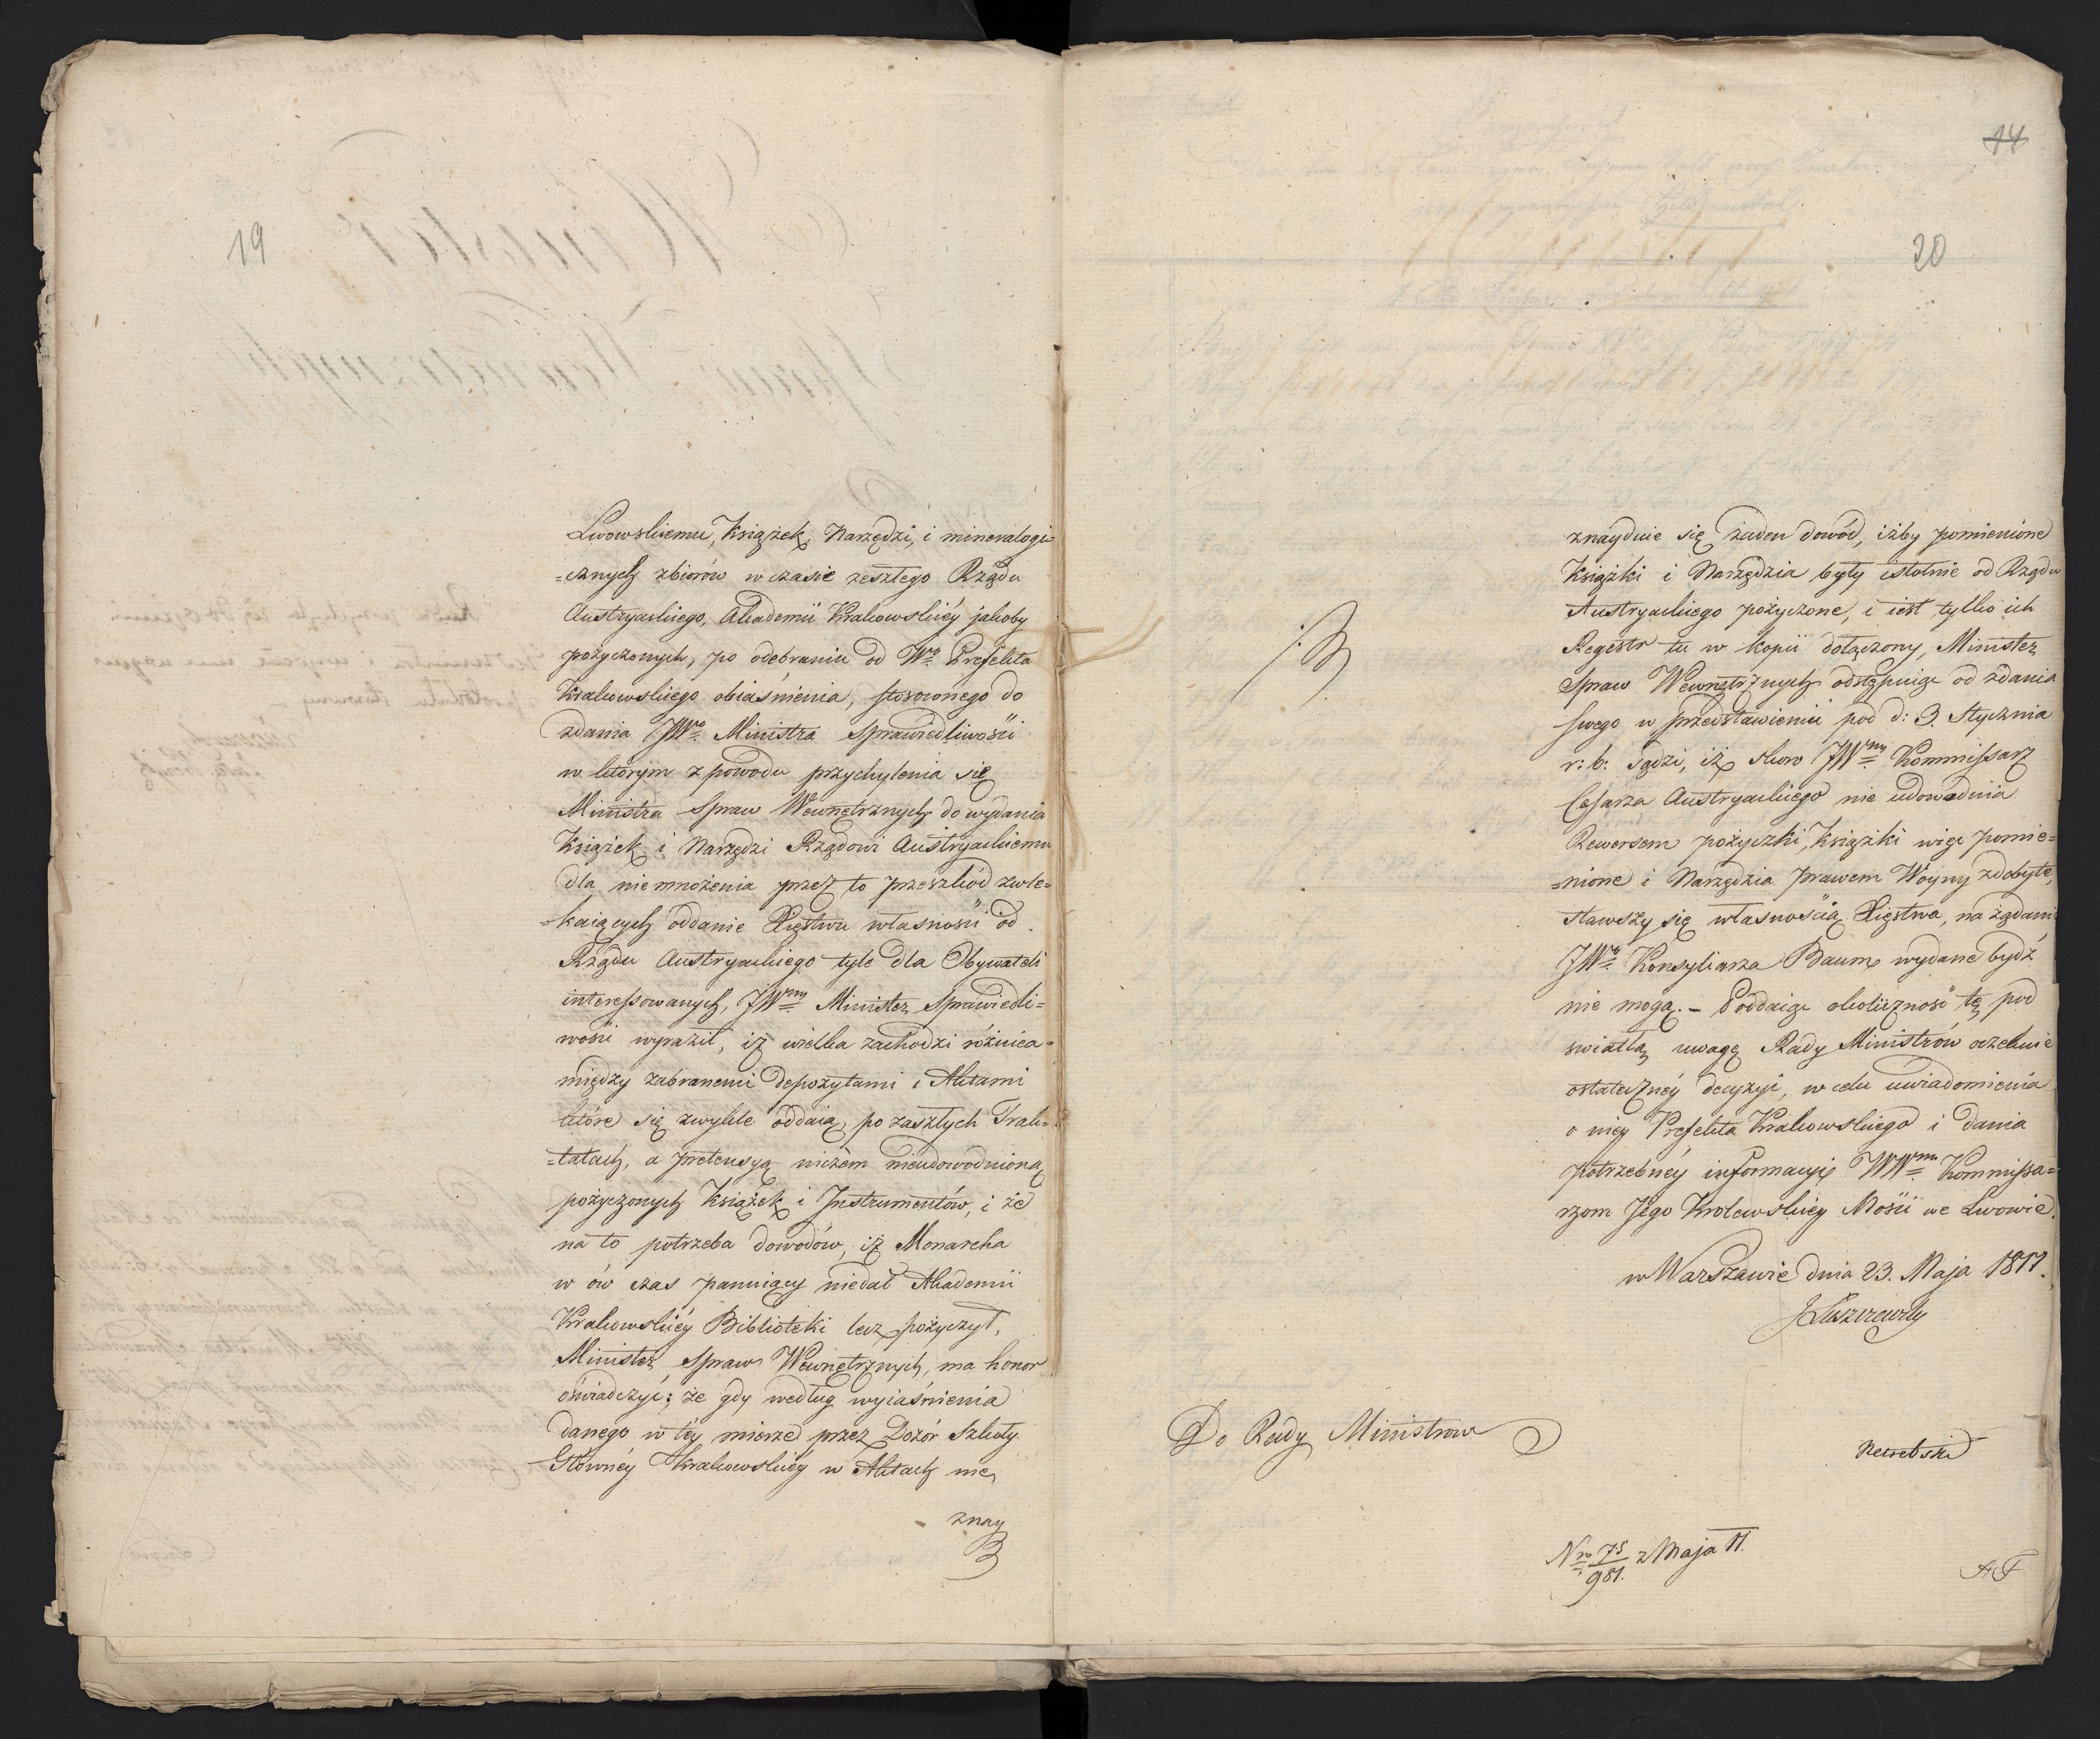 19
Lwowskiemu, Książek, Narzędzi, i mineralogi=
=cznych zbiorów w czasie zeszłego Rządu
Austryackiego, Akademii Krakowskiéy jakoby
pożyczonych, po odebraniu od Wo Prefekta
Krakowskiego obiaśnienia, stosownego do
zdania JWo Ministra Sprawiedliwości
w którym z powodu przychylenia się
Ministra Spraw Wewnętrznych do wydania
Książek i Narzędzi Rządowi Austryackiemu
dla niemnożenia przez to przeszkód zwle=
=kaiących oddanie Xięstwu własności od
Rządu Austryackiego tyle dla Obywateli
interessowanych, JWny Minister Sprawiedli=
wości wyraził, iż wielka zachodzi różnica
między zabranemi depozytami i Aktami
które się zwykle oddaią, po zaszłych Trak=
=tatach, a pretensyą niczém nieudowodnioną
pożyczonych Książek i Instrumentów, i że
na to potrzeba dowodów, iż Monarcha
w ów czas panuiący niedał Akademii
Krakowskiéy Biblioteki lecz pożyczył,
Minister Spraw Wewnętrznych, ma honor
oświadczyć; że gdy według wyiaśnienia
danego w téy mierze przez Dozór Szkoły
Główney Krakowskiéy w Aktach nie
znay
14
20
znayduie się żaden dowód, iżby pomienione
Książki i Narzędzia były istotnie od Rządu
Austryackiego pożyczone, i iest tylko ich
Regestr tu w kopii dołączony, Minister
Spraw Wewnętrznych odstępuiąc od zdania
swego w przedstawieniu pod d: 3. Stycznia
r: b: sądzi, iż skoro JWny Kommissarz
Cesarza Austryackiego nie udowadnia
Rewersem pożyczki, Książki więc pomie=
=nione i Narzędzia prawem Woyny zdobyte,
stawszy się własnością Xięstwa, na żądanie
JWo Konsyliarza Baum wydane bydź
nie mogą. – Poddaiąc okoliczność tę pod
swiatłą uwagę Rady Ministrów oczekuie
ostateczney decyzyi, w celu uwiadomienia
o niéy Prefekta Krakowskiego i dania
potrzebnéy informacyi WWnm Kommissa=
rzom Jego Krolewskiey Mości we Lwowie.
w Warszawie dnia 23. Maja 1811.
JŁuszczewsky
Do Rady Ministrow
Nro 75/981. z Maja 11.